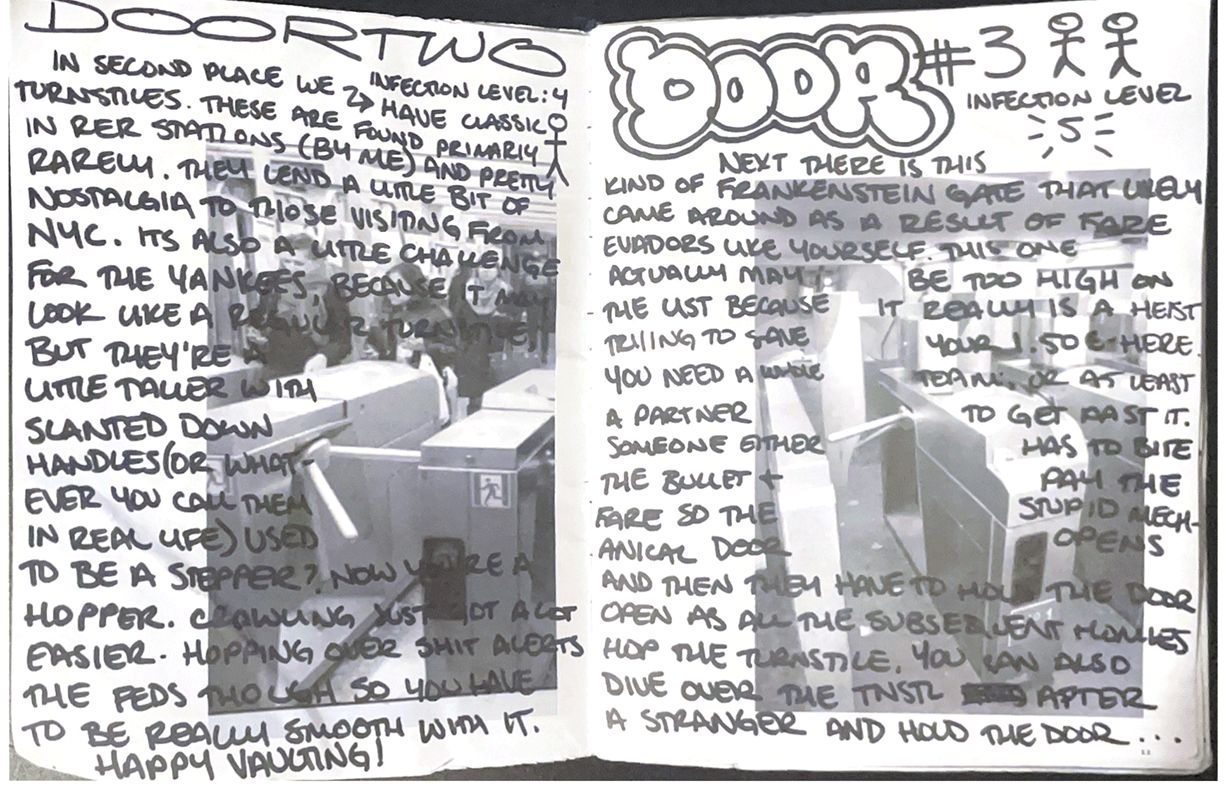 DOOR TWO
IN SECOND PLACE WE INFECTION LEVEL: 4
TURNSTILES. THESE ARE HAVE CLASSIC
IN RER STATIONS (BY ME) FOUND PRIMARIY
RARELY. THEY LEND A LITTLE BIT OF AND PRETTY
NOSTALGIA TO THOSE VISITING FROM
NYC. ITS ALSO A LITTLE CHALLENGE
FOR THE YANKEES, BECAUSE IT MAY
LOOK LIKE A REGULAR TURNSTILE
BUT THEY'RE A
LITTLE TALLER WITH
SLANTED DOWN
HANDLES (OR WHAT-
EVER YOU CALL THEM
IN REAL LIFE) USED
TO BE A STEPPER? NOW YOU'RE A
HOPPER. CRAWLING JUST GOT A LOT
EASIER. HOPPING OVER SHIT ALERTS
THE FEDS THOUGH SO YOU HAVE
TO BE REALLY SMOOTH WITH IT.
HAPPY VAULTING!
DOOR #3
INFECTION LEVEL
5
NEXT THERE IS THIS
KIND OF FRANKENSTEIN GATE THAT LIKELY
CAME AROUND AS A RESULT OF FARE
EVADORS LIKE YOURSELF. THIS ONE
ACTUALLY MAY BE TOO HIGH ON
THE LIST BECAUSE IT REALLY IS A HEIST
TRYING TO SAVE YOUR 1.50 € HERE
YOU NEED A WHOLE TEAM, OR AT LEAST
A PARTNER TO GET PAST IT.
SOMEONE EITHER HAS TO BITE
THE BULLET + PAY THE
FARE SO THE STUPID MECH-
ANICAL DOOR OPENS
AND THEN THEY HAVE TO HOLD THE DOOR
OPEN AS ALL THE SUBSEQUENT HOMIES
HOP THE TURNSTILE. YOU CAN ALSO
DIVE OVER THE TNSTL AFTER
A STRANGER AND HOLD THE DOOR...